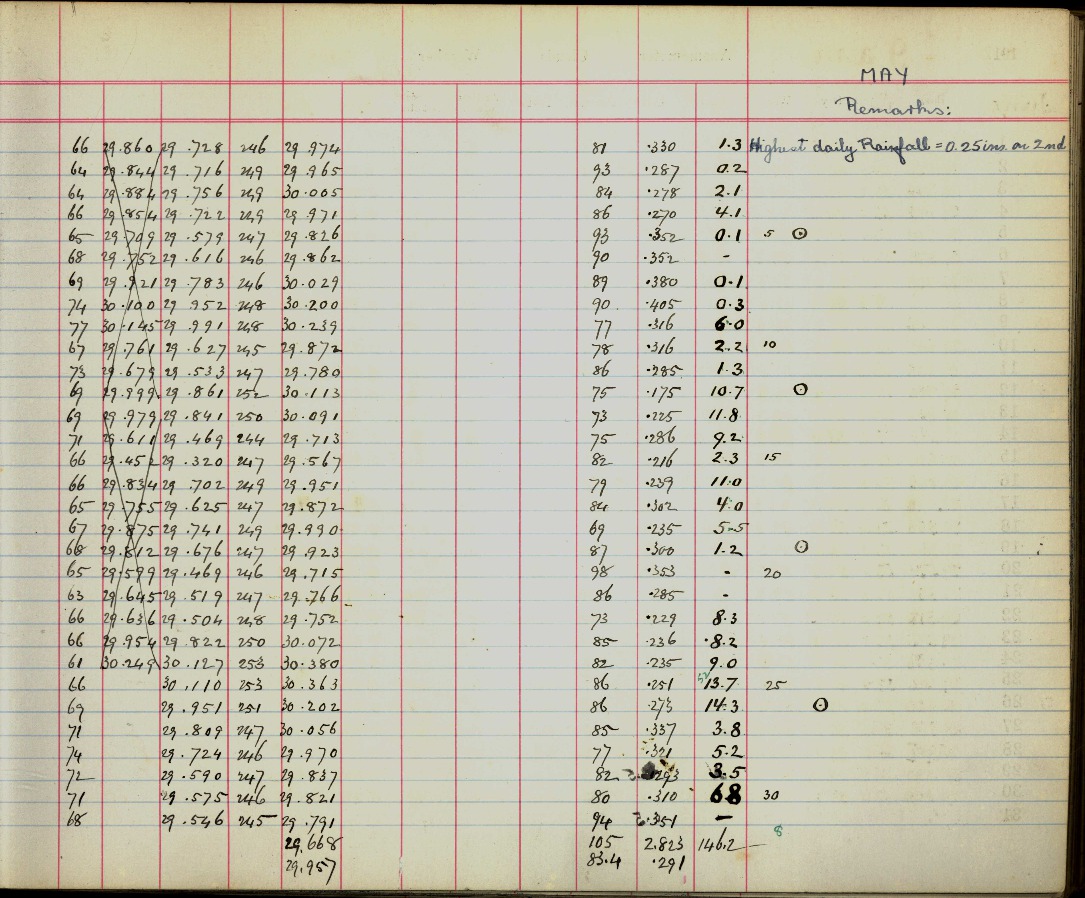 MAY
Remarks:
66 29.860 29 .728 246 29.974 81 .330 1.3 Highest daily Rainfall = 0.25 ins. on 2nd
64 29.844 29 .716 249 29.965 93 .287 0.2
64 29.884 29 .756 249 30.005 84 .278 2.1
66 29.854 29 .722 249 29.971 86 .270 4.1
65 29.709 29 .579 247 29.826 93 .352 0.1 5 ⊙
68 29.752 29 .616 246 29.862 90 .352 -
69 29.921 29 .783 246 30.029 89 .380 0.1
74 30.100 29 .952 248 30.200 90 .405 0.3
77 30.145 29 .991 248 30.239 77 .316 6.0
67 29.761 29 .627 245 29.872 78 .316 2.2 10
73 29.679 29 .533 247 29.780 86 .285 1.3
69 29.999 29 .861 252 30.113 75 .175 10.7 ⊙
69 29.979 29 .841 250 30.091 73 .225 11.8
71 29.611 29 .469 244 29.713 75 .286 9.2
66 29.452 29 .320 247 29.567 82 .216 2.3 15
66 29.834 29 .702 249 29.951 79 .239 11.0
65 29.755 29 .625 247 29.872 84 .302 4.0
67 29.875 29 .741 249 29.990 69 .235 5.5
68 29.812 29 .676 247 29.923 87 .300 1.2 ⊙
65 29.599 29 .469 246 29.715 98 .353 - 20
63 29.645 29 .519 247 29.766 86 .285 -
66 29.636 29 .504 248 29.752 73 .229 8.3
66 29.954 29 .822 250 30.072 85 .236 8.2
61 30.249 30 .127 253 30.380 82 .235 9.0
66 30 .110 253 30.363 86 .251 13.7 25
69 29 .951 251 30.202 86 .273 14.3 ⊙
71 29 .809 247 30.056 85 .337 3.8
74 29 .724 246 29.970 77 .321 5.2
72 29 .590 247 29.837 82 .293 3.5
71 29 .575 246 29.821 80 .310 6.8 30
68 29 .546 245 29.791 94 .351 -
29.668 105 2.823 146.2 8
29.957 83.4 .291